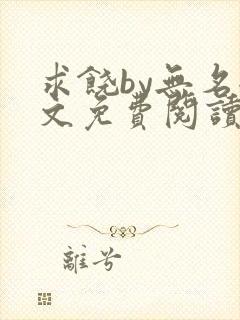 求饒by無名
文免費閱讀
離兮